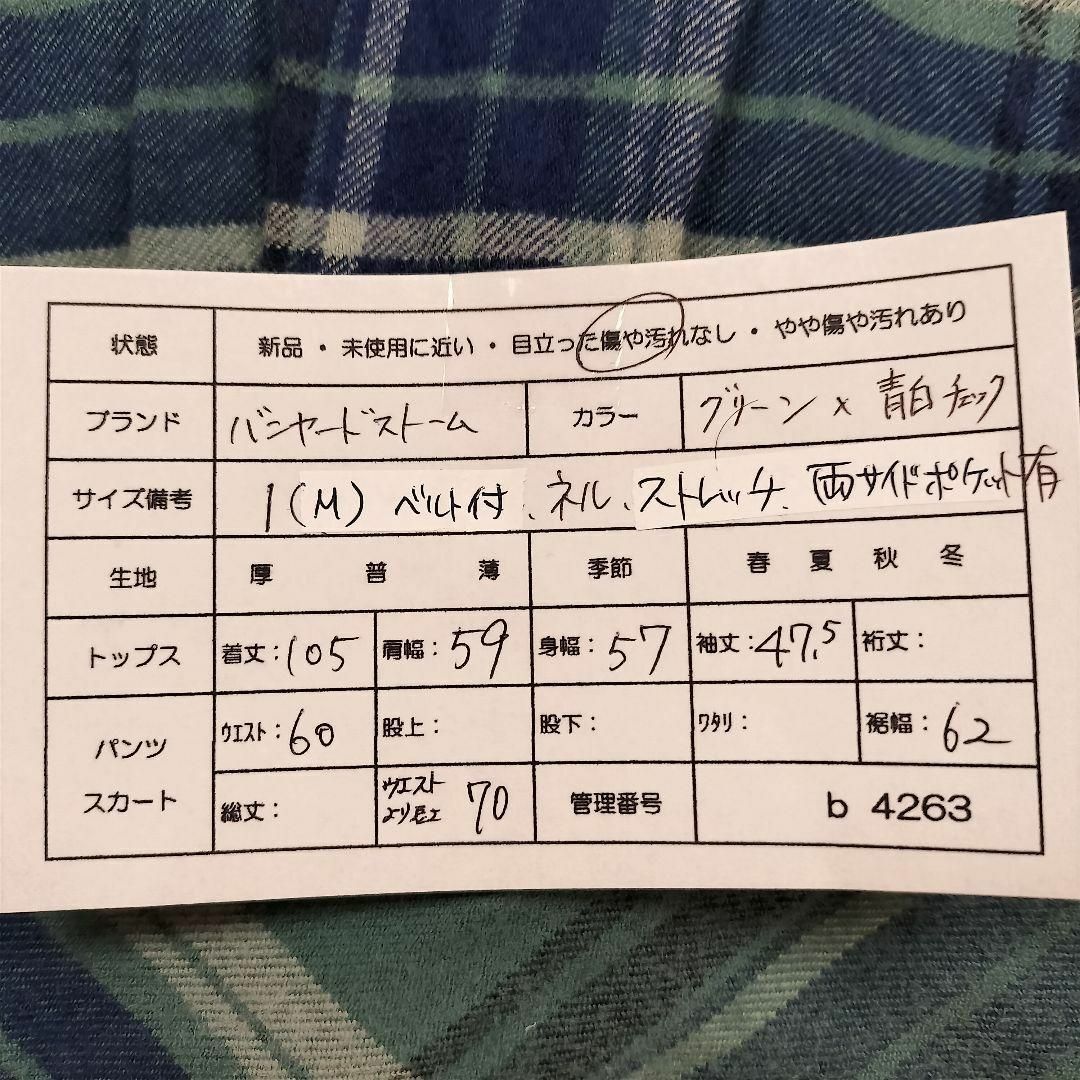 状態 新品・未使用に近い・目立った傷や汚れなし・やや傷や汚れあり
ブランド バンヤードストーム カラー グリーン×青白チェック
サイズ備考 1(M) ベルト付、ネル、ストレッチ、両サイドポケット有
生地 厚 普 薄 季節 春 夏 秋 冬
トップス 着丈:105 肩幅:59 身幅:57 袖丈:47.5 裄丈:
パンツ スカート ウエスト:60 股上: 股下: ワタリ: 裾幅:62
総丈: ウエストより丈 70 管理番号 b 4263